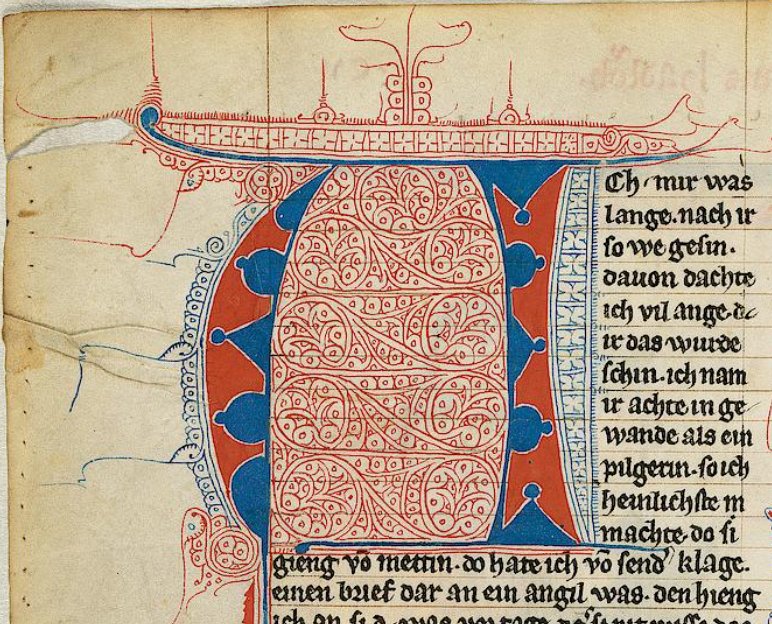 Ch mir was
lange. nach ir
so we gesin.
dauon dachte
ich vil ange. dc
ir das wurde
schin. ich nam
ir achte in ge
wande als ein
pilgerin. so ich
heinlichste m
machte. do si
gieng vō mettin. do hate ich vō send' klage.
einen brief dar an ein angil was. den hieng
ich an si